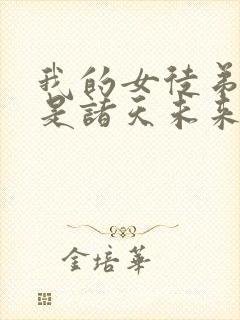 我的女徒弟
是諸天未來
金培華